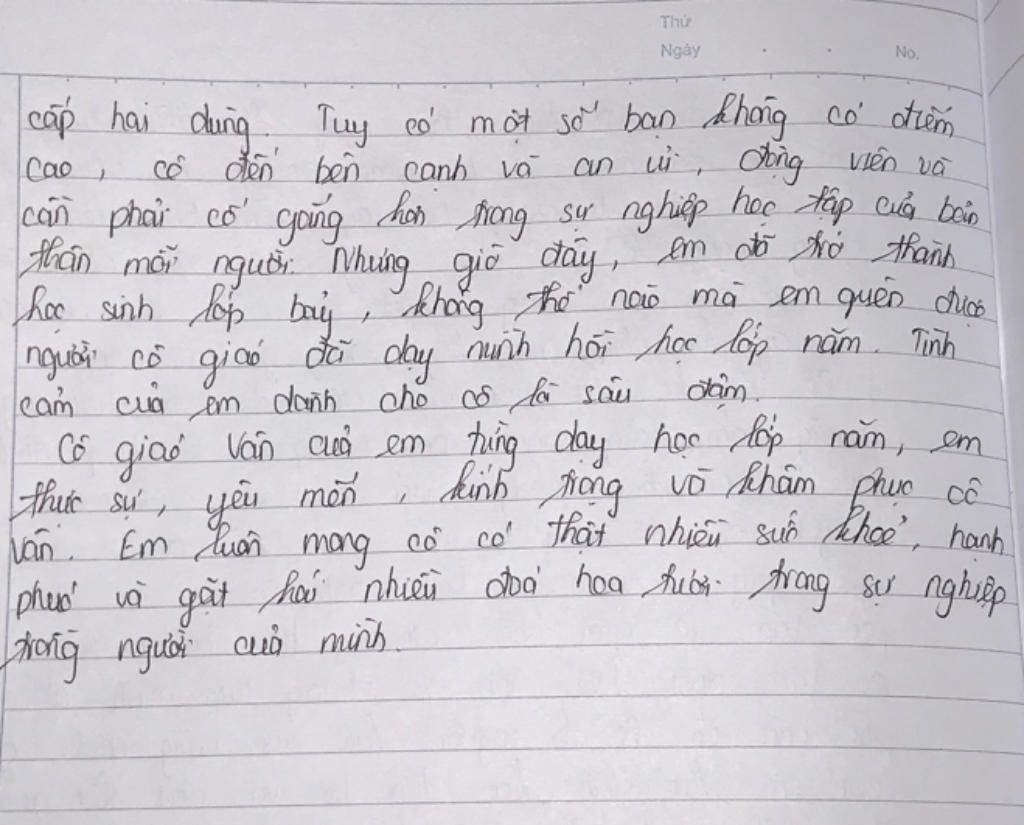 Thứ
Ngày . . No.
cấp hai dùng. Tuy có một số bạn không có điểm
cao, cô đến bên cạnh và an ủi, động viên và
cần phải cố gắng hơn trong sự nghiệp học tập của bản
thân mỗi người. Nhưng giờ đây, em đã trở thành
học sinh lớp bảy, không thể nào mà em quên được
người cô giáo đã dạy mình hồi học lớp năm. Tình
cảm của em dành cho cô là sâu đậm.
Cô giáo Vân của em từng dạy học lớp năm, em
thực sự, yêu mến, kính trọng và khâm phục cô
Vân. Em luôn mong cô có thật nhiều sức khoẻ, hạnh
phúc và gặt hái nhiều đoá hoa tươi trong sự nghiệp
trồng người của mình.